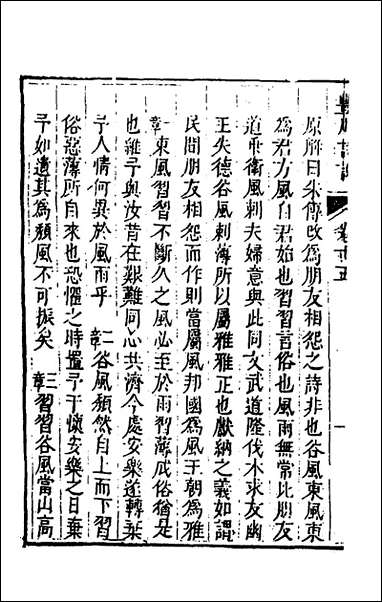 原解曰朱傳改為朋友相怨之詩非也谷風東風東
為君方風自君始也習習言俗也風雨無常比朋友
道乖衛風刺夫婦意與此同文武道隆伐木求友幽
王失德谷風刺薄所以屬雅雅正也獻納之義如謂
民間朋友相怨而作則當屬風邦國為風王朝為雅
章東風習習不斷久之風必至於雨習薄成俗猶是
也維予與汝昔在艱難同心共濟今處安樂遂轉棄
予人情何異於風雨乎 二谷風頹然自上而下習
俗惡薄所自來也恐懼之時置予于懷安樂之日棄
予如遺其為頹風不可振矣 三章習習谷風當山高
卷十五